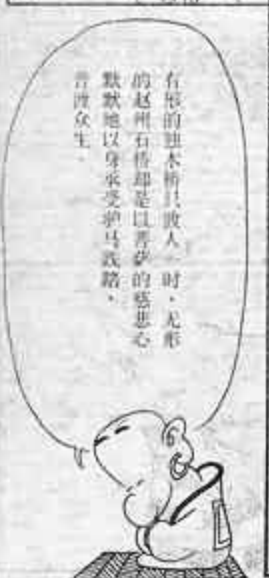 有形的独木桥只渡人一时，无形
的赵州石桥却是以菩萨的慈悲心
默默地以身承受驴马践踏，
普渡众生．